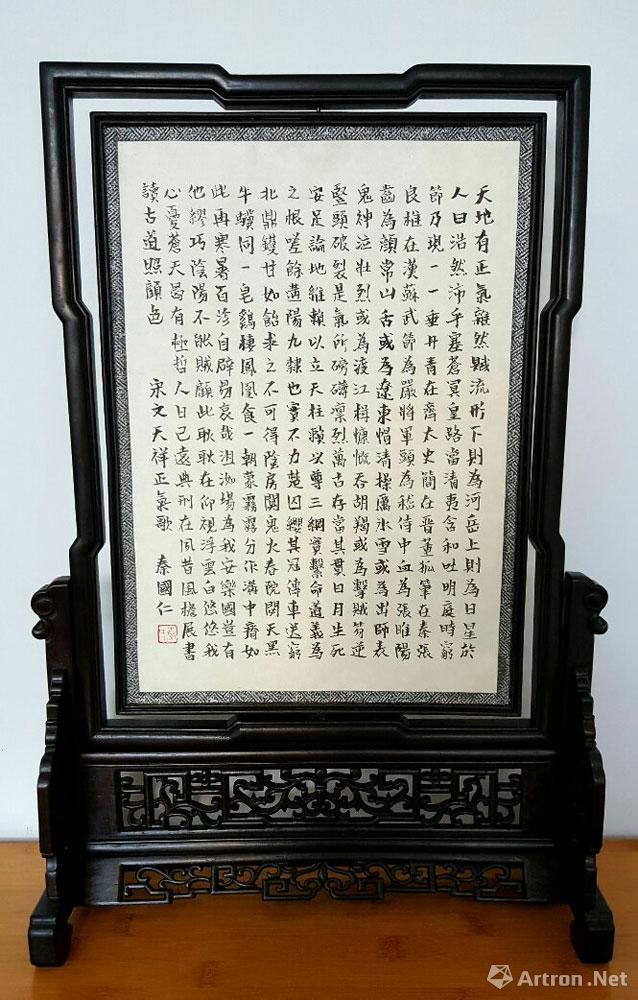 天地有正氣雜然賦流形下則為河岳上則為日星於
人曰浩然沛乎塞蒼冥皇路當清夷含和吐明庭時窮
節乃現一一垂丹青在齊太史簡在晉董狐筆在秦張
良椎在漢蘇武節為嚴將軍頭為嵇侍中血為張睢陽
齒為顏常山舌或為遼東帽清操厲冰雪或為出師表
鬼神泣壯烈或為渡江楫慷慨吞胡羯或為擊賊笏逆
豎頭破裂是氣所磅礴凜烈萬古存當其貫日月生死
安足論地維賴以立天柱賴以尊三綱實繫命道義為
之根嗟餘遘陽九隸也實不力楚囚纓其冠傳車送窮
北鼎鑊甘如飴求之不可得陰房闃鬼火春院閟天黑
牛驥同一皂鷄棲鳳凰食一朝蒙霧露分作溝中瘠如
此再寒暑百沴自辟易哀哉沮洳場為我安樂國豈有
他繆巧陰陽不能賊顧此耿耿在仰視浮雲白悠悠我
心憂蒼天曷有極哲人日已遠典刑在夙昔風檐展書
讀古道照顏色
宋文天祥正氣歌 秦國仁
Artron.Net